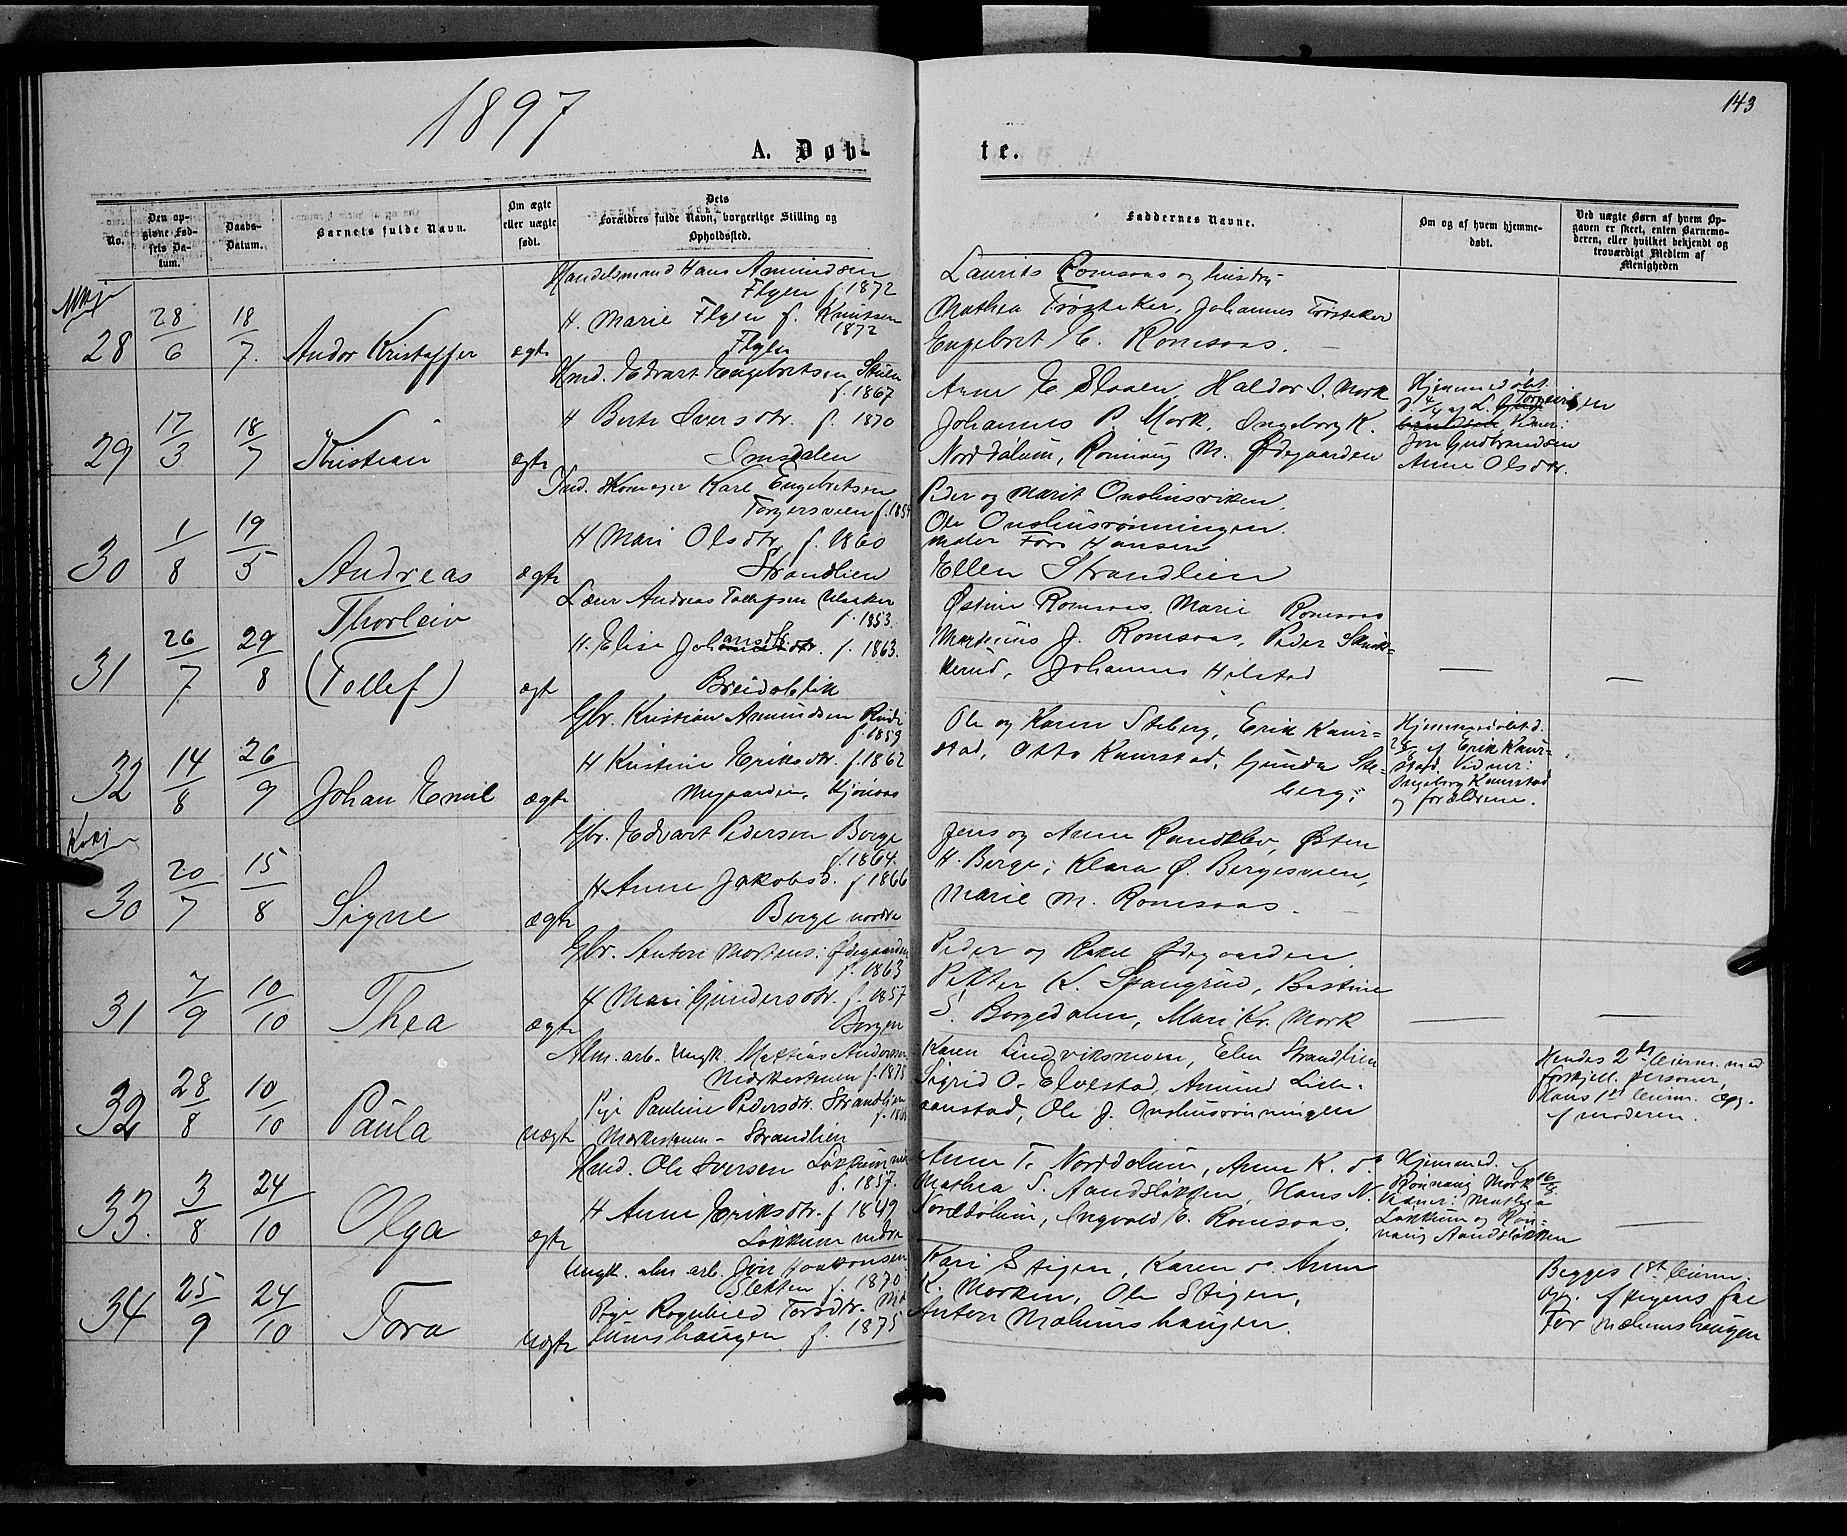 1897
143
A. Døb-
te.
No.
Den op-
givne Fød-
sels Da-
tum.
Daabs-
Datum.
Barnets fulde Navn.
Om ægte
eller uægte
født.
Dets
Forældres fulde Navn, borgerlige Stilling og
Opholdssted.
Faddernes Navne.
Om og af hvem hjemme-
døbt.
Ved uægte Børn af hvem Op-
gaven er skeet, enten Barnemo-
deren, eller hvilket bekjendt og
troværdigt Medlem af
Menigheden
28
28/6
18/7.
Andor Kristoffer
ægte
Handelsmand Hans Amundsen
Flyen f. 1872
H. Marie Flyen f. Knutsen
1872
Flyen
Laurits Romsaas og hustru
Mathea Frøstaker, Johannes Frøstaker
Engebret E. Romsaas.
29
17/3
18/7
Kristian
ægte
Hmd. Edvart Engebretsen
f. 1867
H Berte Iversdtr. f. 1870
Anne E Slaaen, Haldor I. Mork
Johannes P. Mork, Ingeborg K.
Norddølum, Rønnaug M. Ødegaarden
Hjemmedøbt
Jon Gudbrandsen
Anne Olsdtr.
30
1/8
19/5
Andreas
ægte
Ind. Skomager Karl Engebretsen
Torgersveen f. 1854
H Mari Olsdtr f. 1860
Strandlien
Peder og Marit Onshusviken
Ole Onshusrønningen
maler Hansen
Ellen Strandlien
31
26/7
29/8
Thorleiv
(Tollef)
ægt
Lærer Andreas Tollefsen Ulsaker
f. 1853.
H. Elise Johansdtr. f. 1863.
Breidablik
Østine Romsaas, Marie Romsaas
Martinus J. Romsaas, Peder
Johannes Hilstad
—
—
32
14/8
26/9
Johan Emil
ægte
Gbr. Kristian Amundsen
f. 1859
H Kristine Eriksdtr f. 1862
Nygaarden, Kjønaas
Ole og Karen Steberg, Erik Kaur-
stad, Otto Kaurstad, Gunda Ste-
berg.
Hjemmedøbt d.
af Erik Kaur-
stad. Vidner:
Ingeborg Kaurstad
og forældrene.
30
20/7
15/8
Signe
ægte
Gbr. Edvart Pedersen Berge
f. 1864.
H Anne Jakobsd. f 1866
Berge nordre
Jens og Anne Randklev, Østen
H. Berge, Klara Ø. Bergesveen,
Marie M. Romsaas.
31
7/9
10/10
Thea
ægte
Gbr. Anton Mortens. Ødegaarden
f. 1863
H Mari Gundersdtr. f. 1857
Borgen
Peder og Rakel Ødegaarden
Petter K. Spangrud, Bastine
S. Borgedalen, Mari Kr. Mork
32
28/8
10/10
Paula
uægte
Alm. arb. Ungk. Mattias Andersen
f. 1878
Pige Pauline Pedersdtr. Strandlien
Strandlien
Karen Lindviksmoen, Elen Strandlien
Sigrid O. Elvestad, Amund Lille-
aanstad, Ole J. Onshusrønningen
Hendes 2den leierm. med
forskjell. personer,
Hans 1st leierm. Opg.
af moderen.
33.
3/8
24/10
Olga
ægte
Hmd. Ole Iversen Løkkum
f. 1857.
H Anne Eriksdtr. f 1849
Løkkum nedre
Anne T. Norddølum, Anne K.
Mathea S. Aandsløkken, Hans N.
Norddølum, Ingvald E. Romsaas.
Hjemmed. af
Rønnaug Mork
Vidner: Mathea
Løkkum og Røn-
naug Aandsløkken
34
25/9
24/10
Tora
uægte
Ungk. alm arb. Jon Jaakonsen
Sletten f. 1870
Pige Ragnhild Torsdtr. Mæ-
lumshaugen f. 1875
Kari Stigen, Karen og Anne
K. Morken, Ole Stigen,
Anton Mælumshaugen.
Begges 1st leierm.
Opg. af pigens far
Tor Mælumshaugen